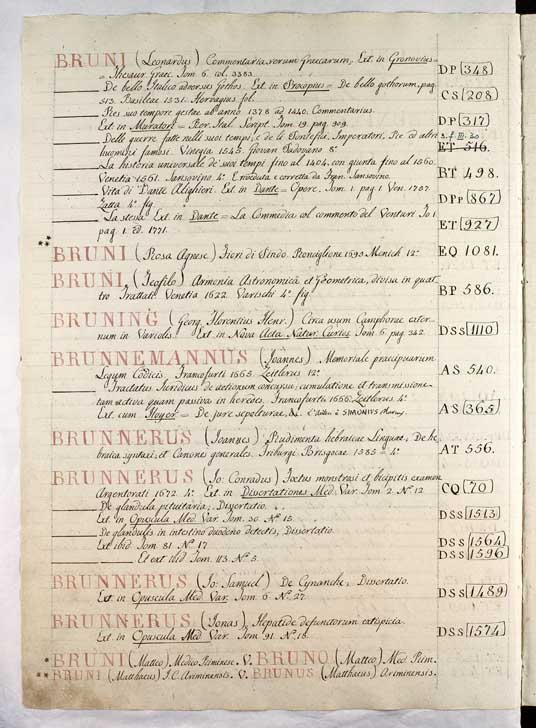 BRUNI (Leonardus) Commentaria rerum Graecarum. Ext. in Gronovius
= Thesaur. Graec. Tom 6. col. 3383. DP 348
De bello Italico adversus Gothos. Ext. in Procopius = De bello gothorum, pag.
513. Basileae 1531. Hervagius fol. CS 208
Res suo tempore gestae ab anno 1378 ad 1440. Commentarius.
Ext. in Muratori = Rer. Ital. Script. Tom. 19. pag. 909. DP 317
Delle guerre fatte nelli suoi tempi, e de li Pontefici, Imperatori, Re ed altri
huomini famosi. Vinegia 1545. Giovan Padovano 8° ET 546.
La historia universale de' suoi tempi fino al 1404. con giunta fino al 1560.
Venetia 1561. Sansovino 4° Riveduta e corretta da Fran. Sansovino. BT 498.
Vita di Dante Alighieri. Ext. in Dante = Opere. Tom. 1. pag. 1. Ven. 1757.
Zatta 4° fig. DPP 867
La stessa. Ext. in Dante = La Commedia col commento del Venturi To. 1.
pag. 1. Ed. 1771. ET 927
**
BRUNI (Rosa Agnese) Fiori di Pindo. Ronciglione 1690. Menich. 12° EQ 1081.
BRUNI (Teofilo) Armonia Astronomica et Geometrica, divisa in quat-
tro Trattati. Venetia 1622. Varischi 4° fig. BP 586.
BRUNING (Georg. Florentius Henr.) Circa usum Camphorae exter-
num in Variolis. Ext. in Nova Acta Natur. Curios. Tom. 6. pag. 342. DSS 1110
BRUNNEMANNUS (Joannes) Memoriale praecipuarum
Legum Codicis. Francofurti 1665. Zeitlerus 12° AS 540.
Tractatus Iuridicus de actionum concursu, cumulatione et transmissione
tam activa quam passiva in heredes. Francofurti 1666. Zeitlerus 4°
Ext. cum Hoyer = De jure sepolturae, &. AS 365
BRUNNERUS (Joanes) Rudimenta hebraicae Linguae, De he-
braica syntaxi, et Canones generales. Friburgi Brisgoeae 1585 4° AT 556.
BRUNNERUS (Jo: Conradus) Foetus monstrosi et bicipitis examen
Argentorati 1672. 4° Ext. in Dissertationes Med. Var. Tom. 2. N° 12. CQ 70
De glandula pituitaria, Dissertatio.
Ext. in Opuscula Med. Var. Tom. 50. N° 15. DSS 1513
De glandulis in intestino duodeno detectis, Dissertatio.
Ext. ibid. Tom. 81. N° 17. DSS 1564
Et ext. ibid. Tom. 113. N° 5. DSS 1596
BRUNNERUS (Jo: Samuel) De Cynanche, Dissertatio.
Ext. in Opuscula Med. Var. Tom. 6. N° 27. DSS 1489
BRUNNERUS (Jonas) Hepatide defunctorum extispicia.
Ext. in Opuscula Med. Var. Tom. 91. N° 18. DSS 1574
* BRUNI (Matteo) Medico Riminese. V. BRUNO (Matteo) Med. Rim.
** BRUNI (Matthaeus) J.C. Ariminensis. V. BRUNUS (Matthaeus) Ariminensis.